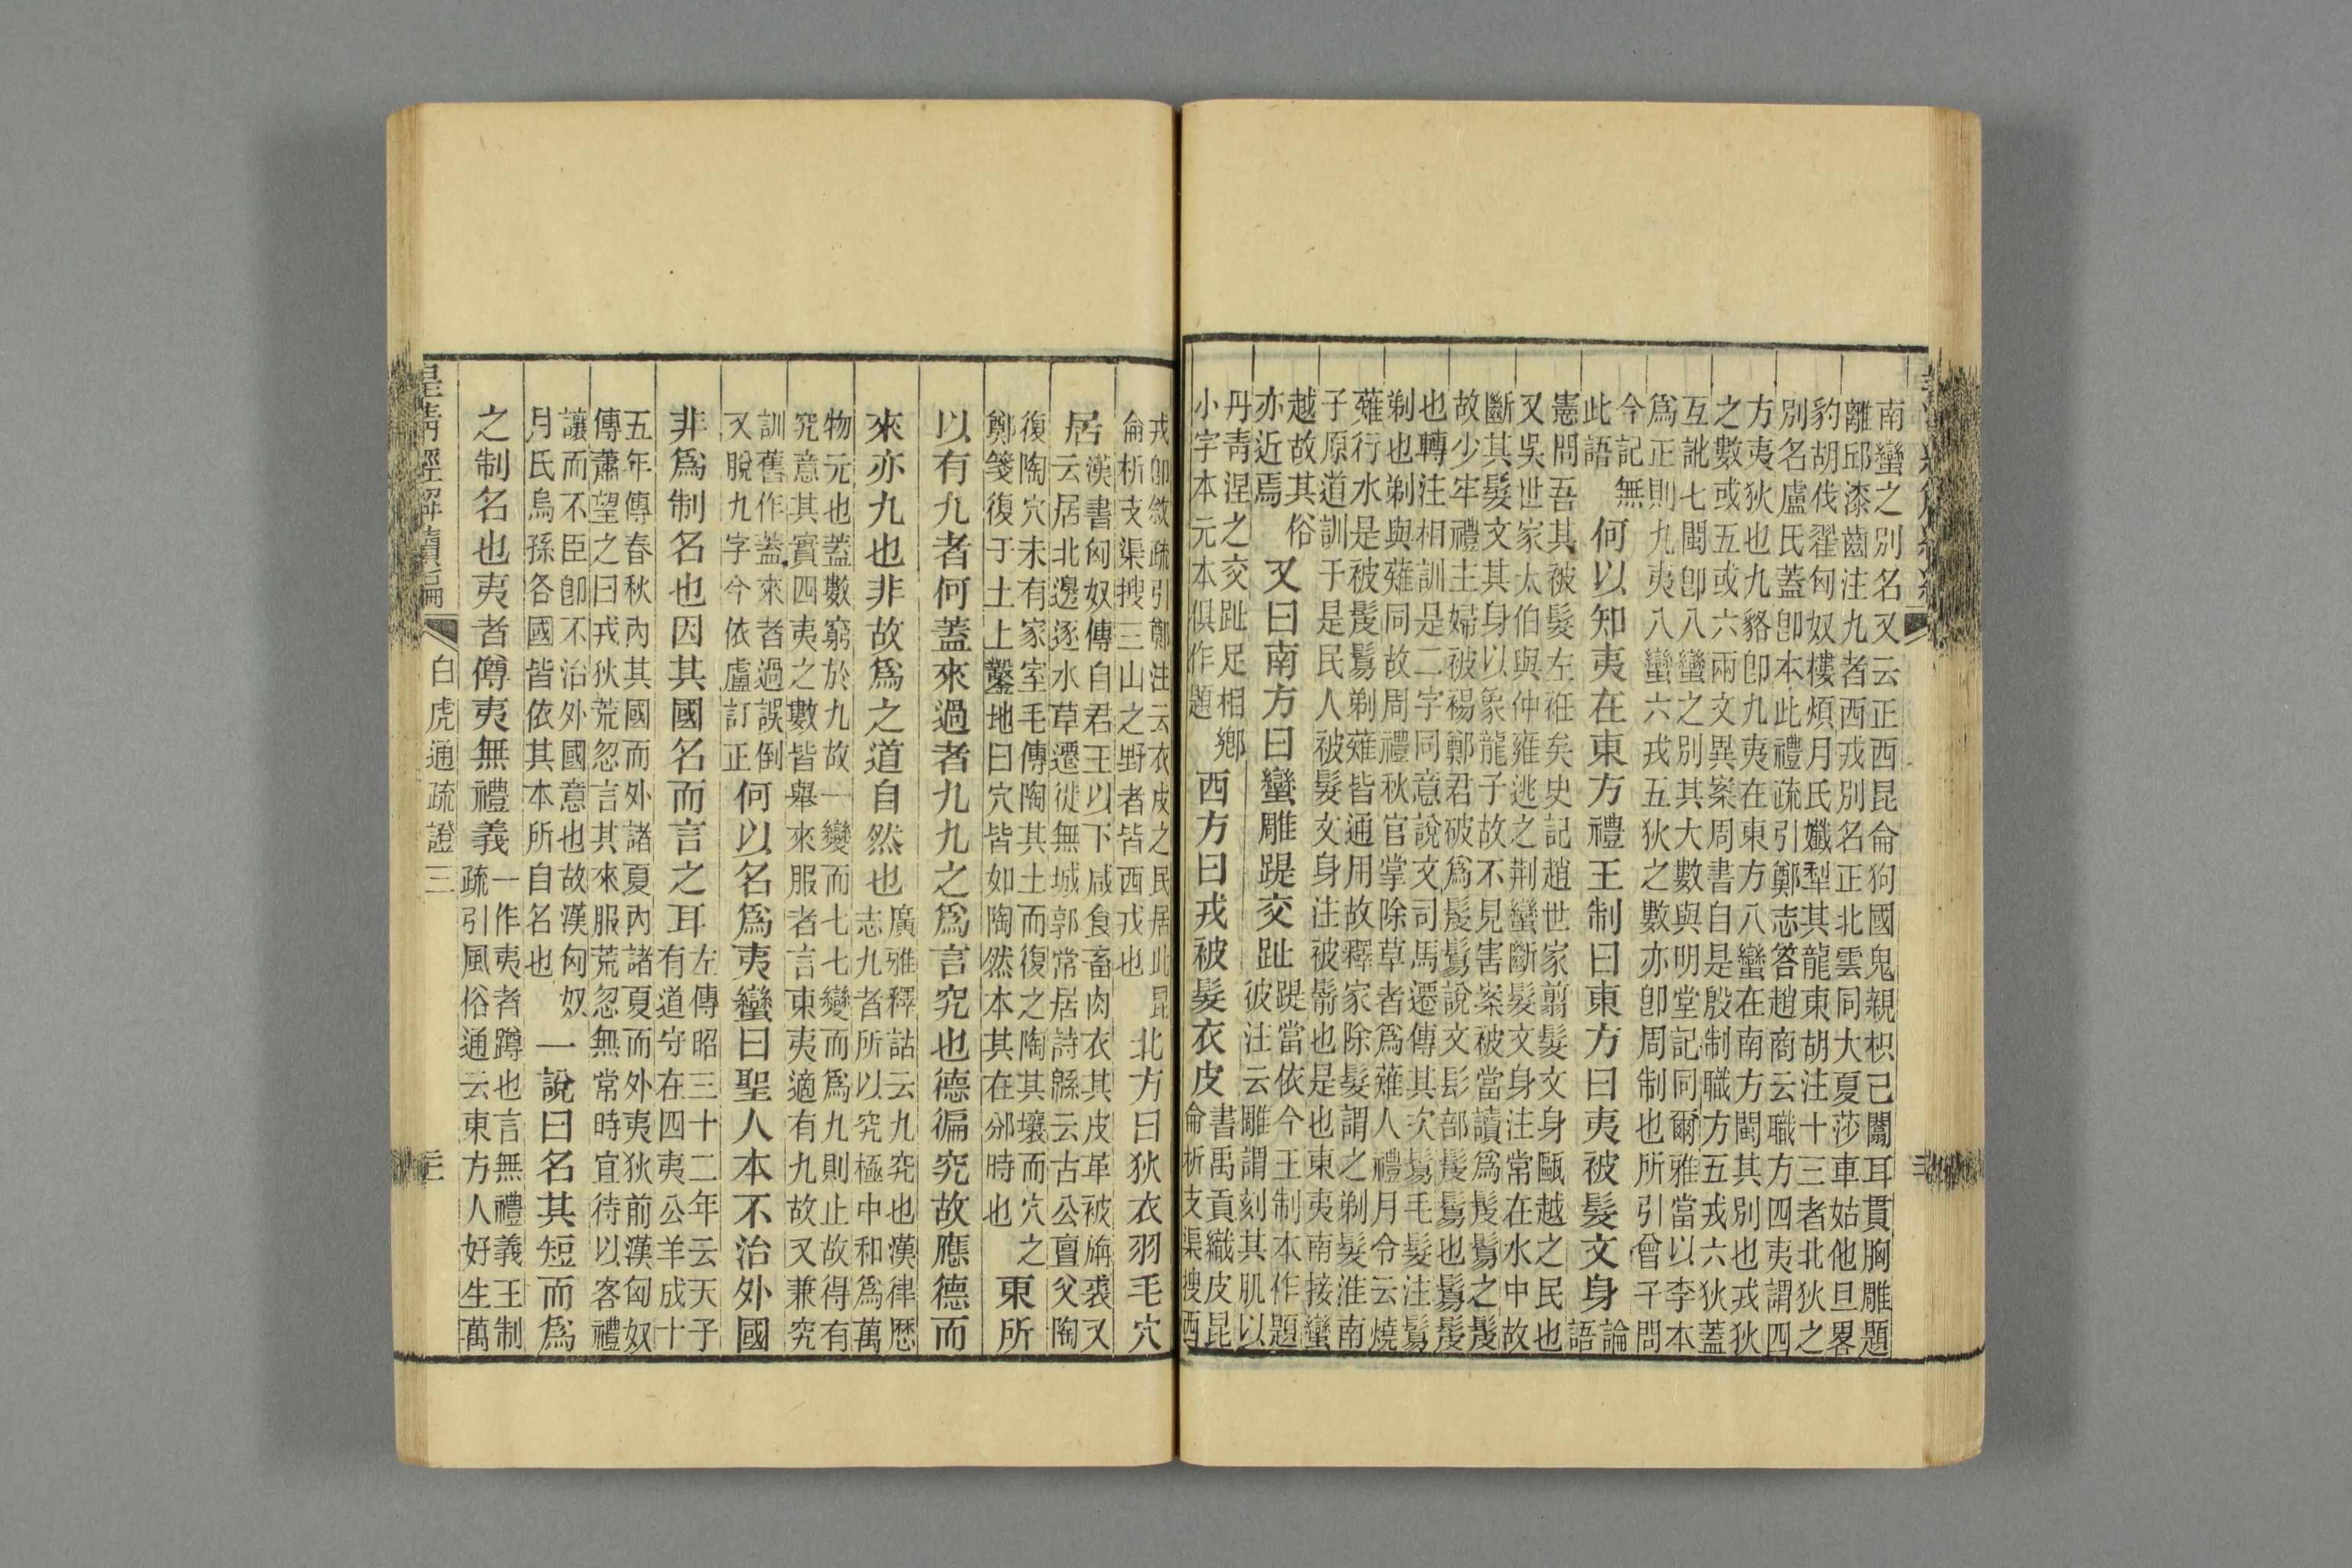 南蠻之別名又云正西昆侖狗國鬼親枳己闟耳貫胸雕題
離邱漆齒注九者西戎別名正北雲同大夏莎車姑他旦畧
豹胡伐翟匈奴樓煩月氏孅犁其龍東胡注十三者北狄之
別名盧氏蓋卽本此禮疏引鄭志答趙商云職方四夷謂四
方夷狄也九貉卽九夷在東方八蠻在南方閩其別也戎狄
之數或五或六兩文異案周書自是殷制職方五戎六狄蓋
互訛七閩卽八蠻之別其大數與明堂記同爾雅當以李本
爲正則九夷八蠻六戎五狄之數亦卽周制也所引曾子問
今記無
此語
何以知夷在東方禮王制曰東方曰夷被髮文身
論
語
憲問吾其被髮左衽矣史記趙世家翦髮文身甌越之民也
又吳世家太伯與仲雍逃之荆蠻斷髮文身注常在水中故
斷其髮文其身以象龍子故不見害案被當讀爲髲鬄之髲
故少牢禮主婦被裼鄭君破爲髲鬄說文髟部髲鬄也鬄髲
也轉注相訓是二字同意說文司馬遷傳其次鬄毛髮注鬄
剃也剃與薙同故周禮秋官掌除草者爲薙人禮月令云燒
薙行水是被髲鬄剃薙皆通用故釋家除髮謂之剃髮淮南
子原道訓于是民人被髮文身注被翦也是也東夷南接蠻
越故其俗
亦近焉
又曰南方曰蠻雕踶交趾
踶當依今王制本作題
彼注云雕謂刻其肌以
丹青涅之交趾足相鄉
小字本元本俱作題
西方曰戎被髮衣皮
書禹貢織皮昆
侖析支渠搜西
戎卽敘疏引鄭注云衣皮之民居此昆
侖析支渠搜三山之野者皆西戎也
北方曰狄衣羽毛穴
居
漢書匈奴傳自君王以下咸食畜肉衣其皮革被旃裘又
云居北邊逐水草遷徙無城郭常居詩緜云古公亶父陶
復陶穴未有家室毛傳陶其土而復之陶其壤而穴之
鄭箋復于土上鑿地曰穴皆如陶然本其在邠時也
東所
以有九者何蓋來過者九九之爲言究也德徧究故應德而
來亦九也非故爲之道自然也
廣雅釋詁云九究也漢律厯
志九者所以究極中和爲萬
物元也蓋數窮於九故一變而七七變而爲九則止故得有
究意其實四夷之數皆舉來服者言東夷適有九故又兼究
訓舊作蓋來者過誤倒
又脫九字今依盧訂正
何以名爲夷蠻曰聖人本不治外國
非爲制名也因其國名而言之耳
左傳昭三十二年云天子
有道守在四夷公羊成十
五年傳春秋內其國而外諸夏內諸夏而外夷狄前漢匈奴
傳蕭望之曰戎狄荒忽言其來服荒忽無常時宜待以客禮
讓而不臣卽不治外國意也故漢匈奴
月氏烏孫各國皆依其本所自名也
一說曰名其短而爲
之制名也夷者僔夷無禮義
一作夷者蹲也言無禮義王制
疏引風俗通云東方人好生萬
皇清經解續編
白虎通疏證三